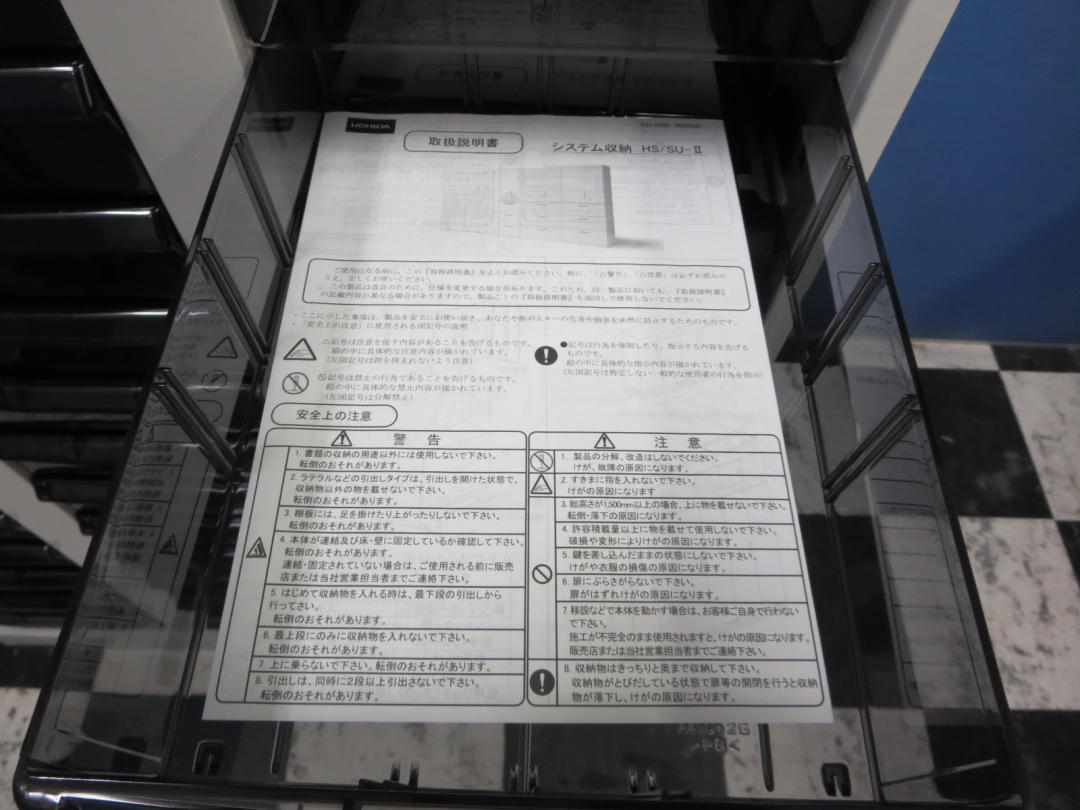 UCHIDA
取扱説明書
システム収納 HS/SU-Ⅱ
ご使用になる前に、この『取扱説明書』をよくお読みください。特に、「⚠警告」「⚠注意」は必ずお読みの
うえ、正しくお使いください。
この製品は改良のために、仕様を変更する場合があります。このため、同一製品においても、『取扱説明書』
の記載内容が異なる場合がありますので、製品ごとの『取扱説明書』を混同して使用しないでください。
・ここに示した事項は、製品を安全にお使い頂き、あなたや他の人々への危害や損害を未然に防止するためのものです。
・「安全上の注意」に使用される図記号の説明
△記号は注意を促す内容があることを告げるものです。
絵の中に具体的な注意内容が描かれています。
(左図記号は指を挟まれないよう注意)
🚫記号は禁止の行為であることを告げるものです。
絵の中に具体的な禁止内容が描かれています。
(左図記号は分解禁止)
●記号は行為を強制したり、指示する内容を告げる
ものです。
絵の中に具体的な指示内容が描かれています。
(左図記号は特定しない一般的な使用者の行為を指示)
安全上の注意
⚠ 警告
1. 書類の収納の用途以外には使用しないで下さい。
転倒のおそれがあります。
2. ラテラルなどの引出しタイプは、引出しを開けた状態で、
収納物以外の物を載せないで下さい。
転倒のおそれがあります。
3. 棚板には、足を掛けたり上がったりしないで下さい。
転倒のおそれがあります。
4. 本体が連結及び床・壁に固定しているか確認して下さい。
転倒のおそれがあります。
連結・固定されていない場合は、ご使用される前に販売
店または当社営業担当者までご連絡下さい。
5. はじめて収納物を入れる時は、最下段の引出しから
行ってさい。
転倒のおそれがあります。
6. 最上段にのみに収納物を入れないで下さい。
転倒のおそれがあります。
7. 上に乗らないで下さい。転倒のおそれがあります。
8. 引出しは、同時に2段以上引出さないで下さい。
転倒のおそれがあります。
⚠ 注意
1. 製品の分解、改造はしないでください。
けが、故障の原因になります。
2. すきまに指を入れないで下さい。
けがの原因になります
3. 総高さが1,500mm以上の場合、上に物を載せないで下さい。
転倒・落下の原因になります。
4. 許容積載量以上に物を載せて使用しないで下さい。
破損や変形によりけがの原因になります。
5. 鍵を差し込んだままの状態にしないで下さい。
けがや衣服の損傷の原因になります。
6. 扉にぶらさがらないで下さい。
扉がはずれけがの原因になります。
7. 移設などで本体を動かす場合は、お客様ご自身で行わない
で下さい。
施工が不完全のまま使用されますと、けがの原因になります。
販売店または当社営業担当者までご連絡下さい。
8. 収納物はきっちりと奥まで収納して下さい。
収納物がとびだしている状態で扉等の開閉を行うと収納
物が落下し、けがの原因になります。